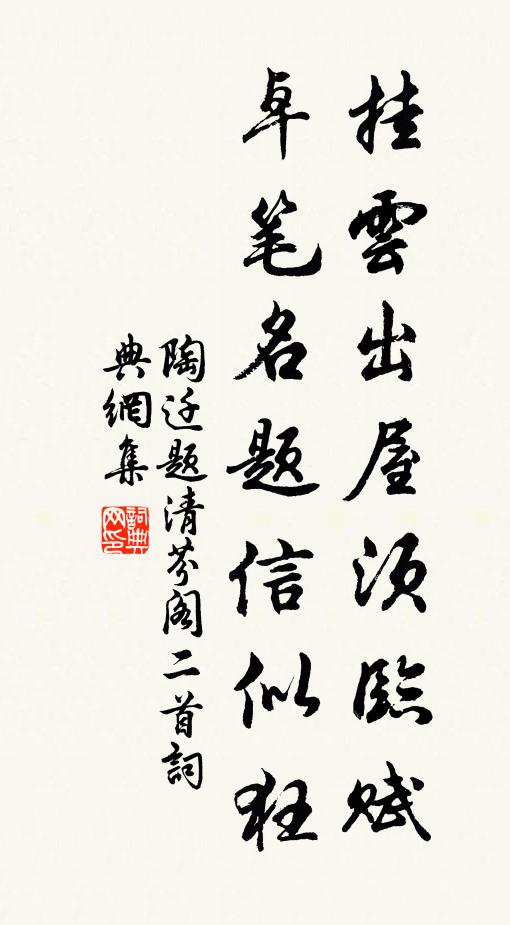 挂雲出屋須臨赋
卓笔名题信似狂
陶迁题清芬阁二首詞
典網集
詞典网印